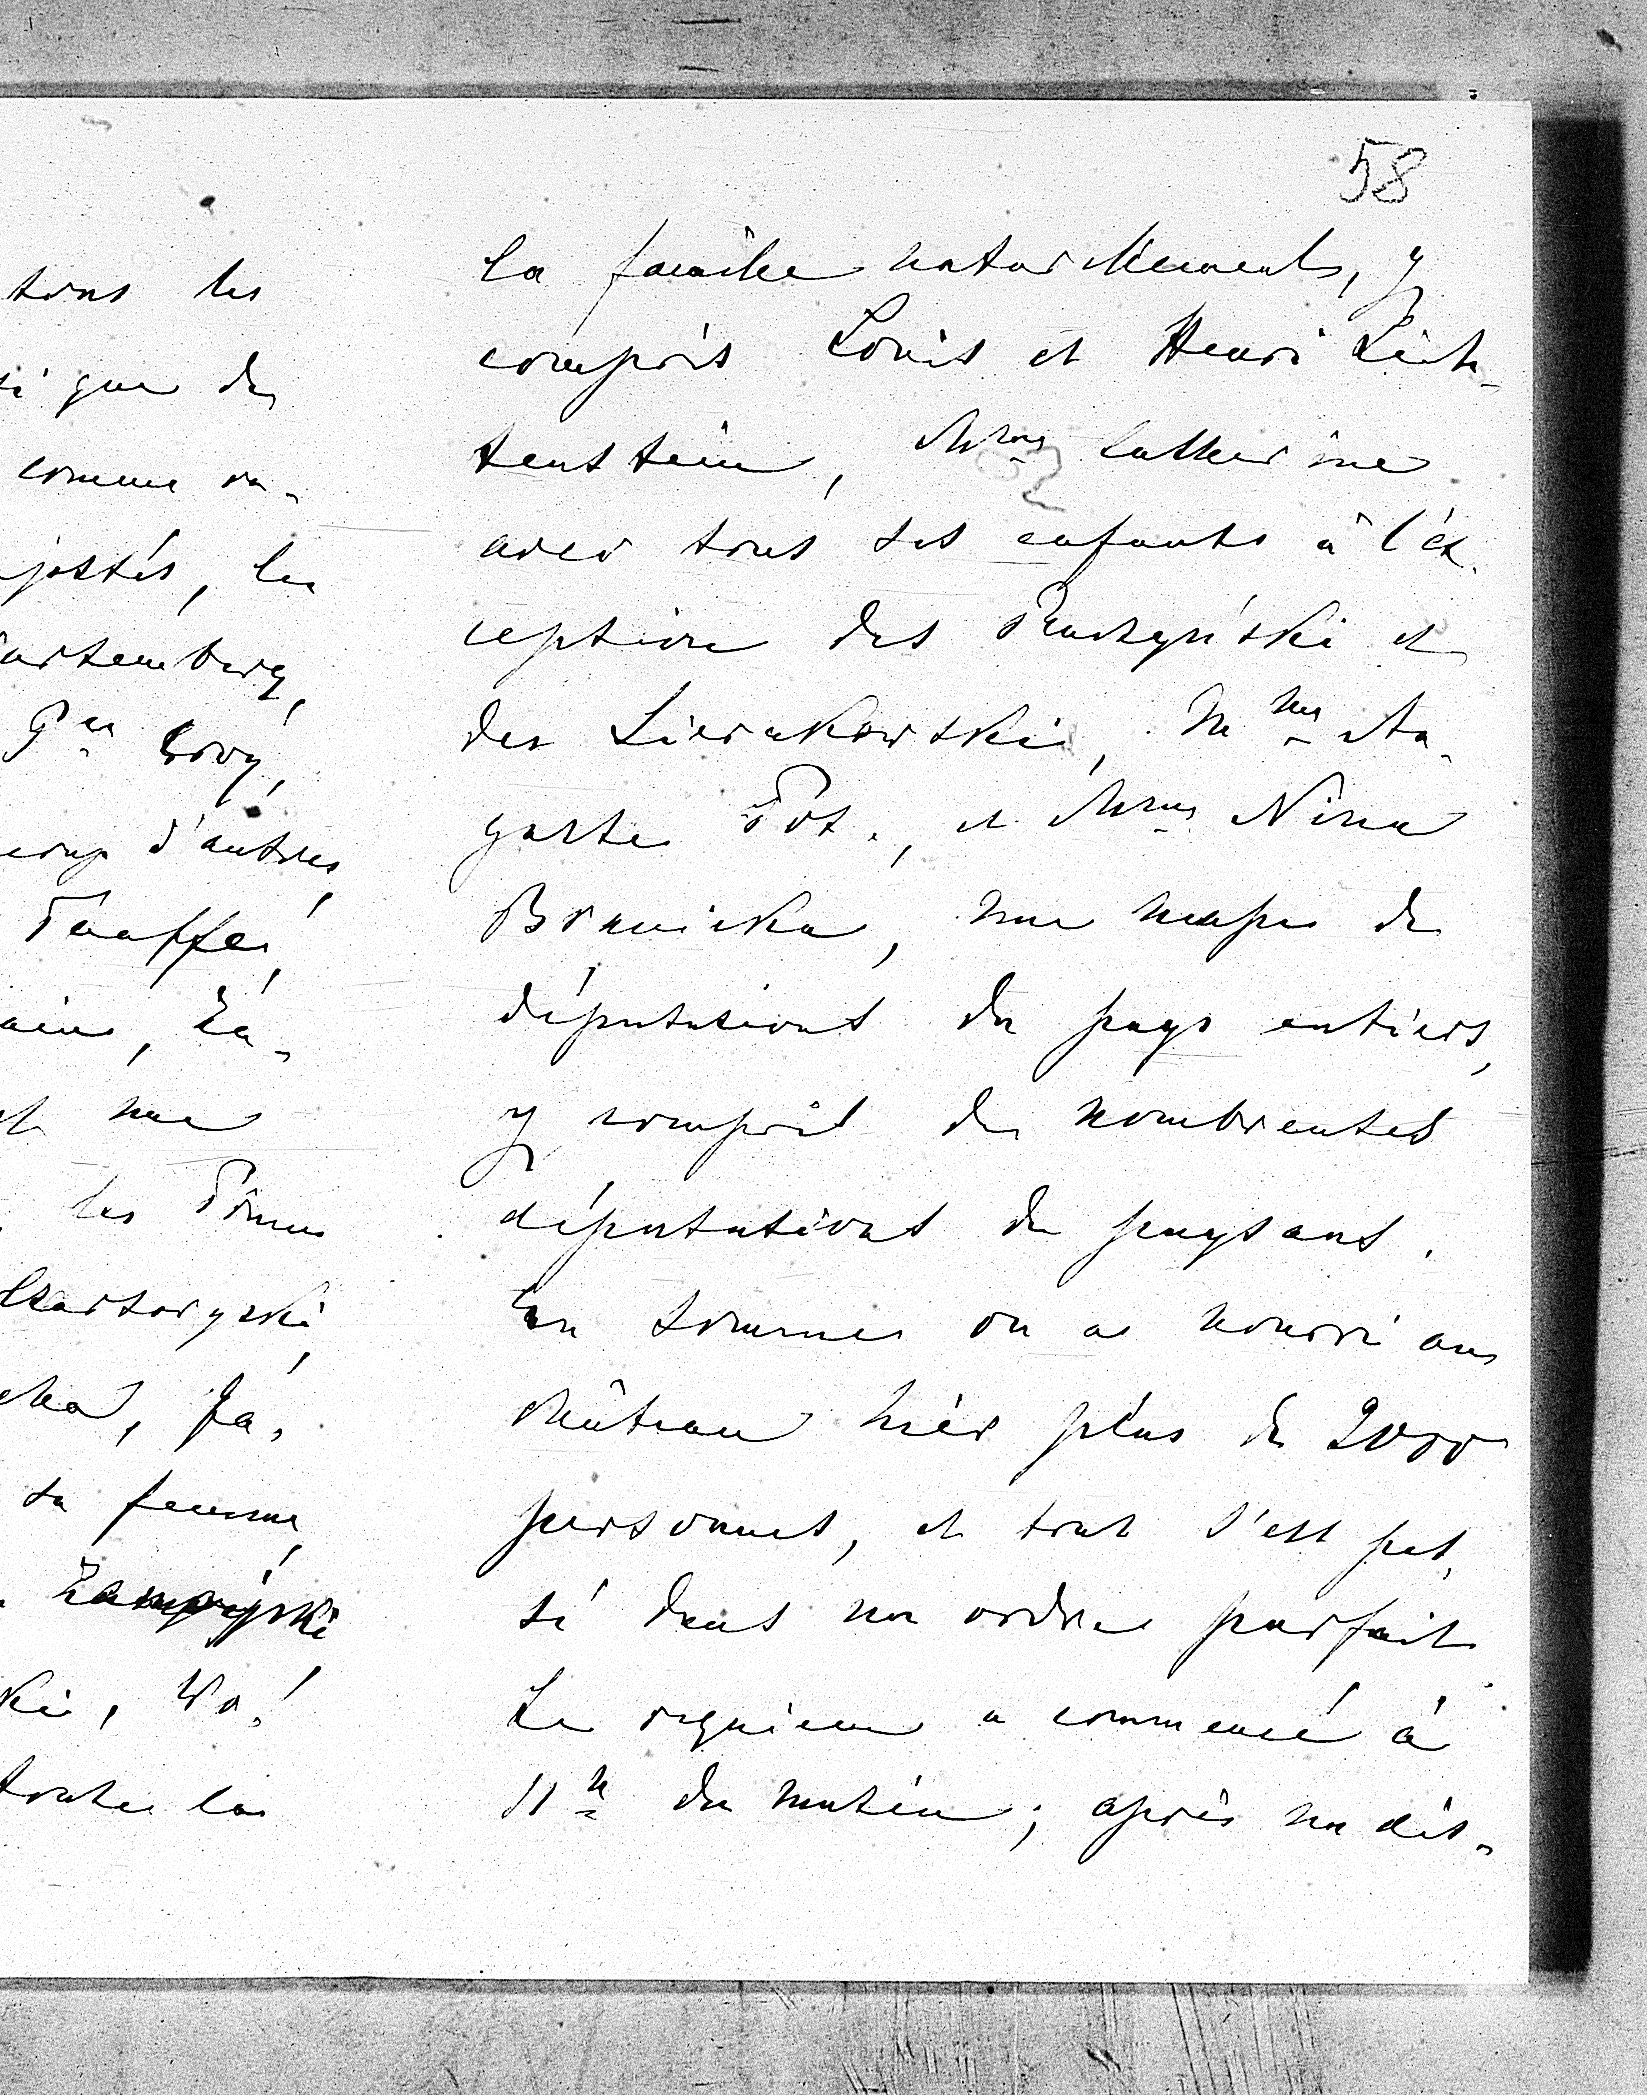 58
tous les
si que de
comme ra-
jestés, la
urtemberg,
Pce Croy,
coup d'autres,
Taaffe,
aine, Za-
une
les Princes
Czartoryski,
cha, Ja-
sa femme,
Zamoyski
ki, Wo-
toute la
la famille naturellement, y
compris Louis et Henri Lich-
tenstein, Mme Catherine
avec tous ses enfants à l'ex-
ception des Raczyński et
des Sierakowski, Mme Au-
guste Pot., et Mme Nina
Branicka, une masse de
députations du pays entiers,
y compris de nombreuses
députations de paysans.
En somme on a nourri au
château hier plus de 2000
personnes, et tout s'est pas-
sé dans un ordre parfait.
Le requiem a commencé à
11h du matin; après un dis-